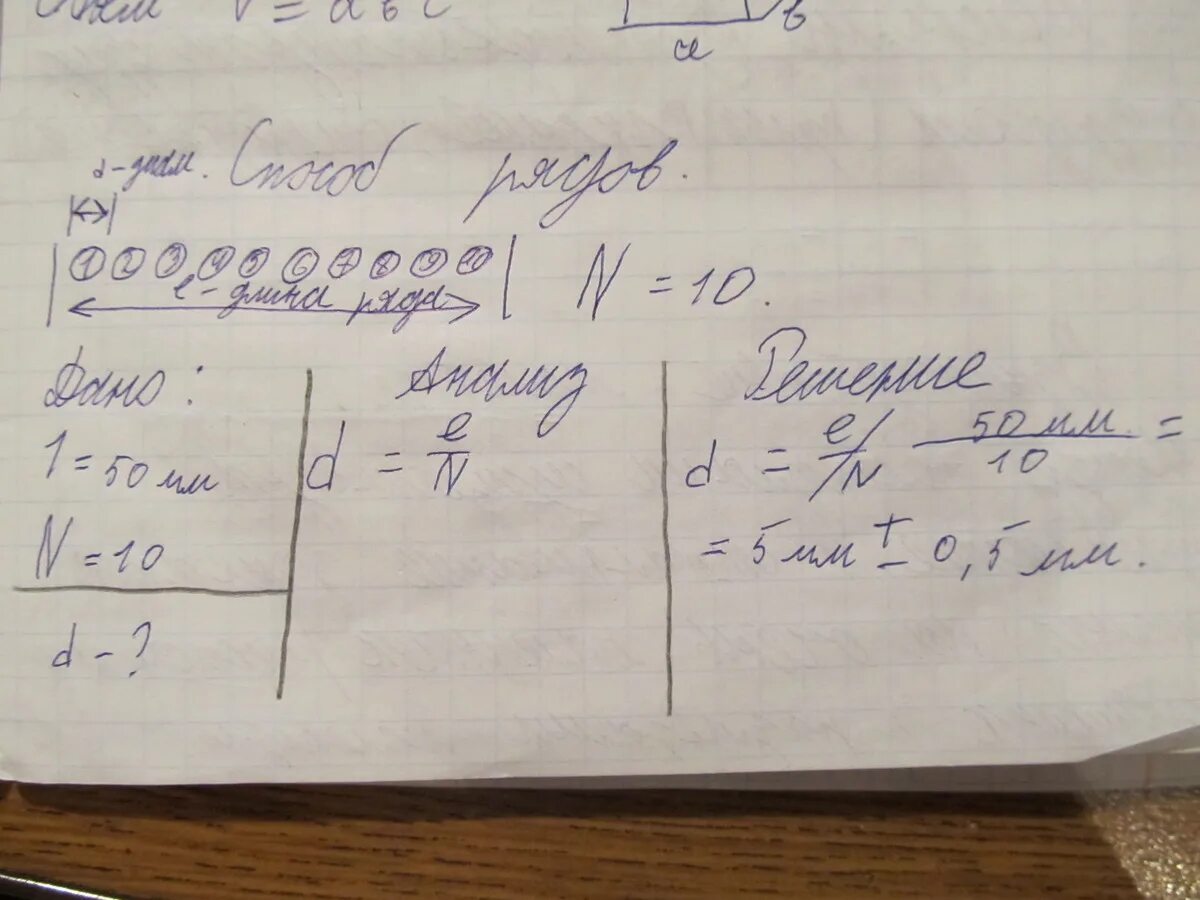 V = a b c
a
в
d - диам. Способ рядов.
1 2 3 4 5 6 7 8 9 10
l - длина ряда
N = 10.
Дано:
l = 50 мм
N = 10
d - ?
Анализ
d = l/N
Решение
d = l/N 50 мм/10 =
= 5 мм ± 0,5 мм.